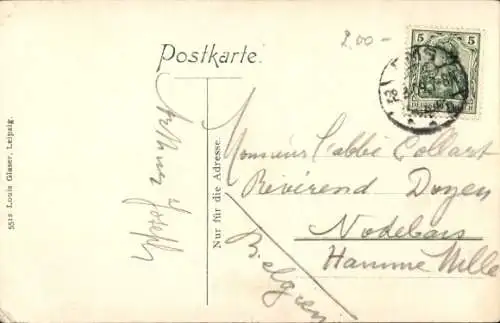 2,00-
Postkarte.
5
5
Monsieur l'abbé Collart
Révérend Doyen
Nodebais
Hamme Mille
Belgien
Nur für die Adresse.
Joseph
5512 Louis Glaser, Leipzig.